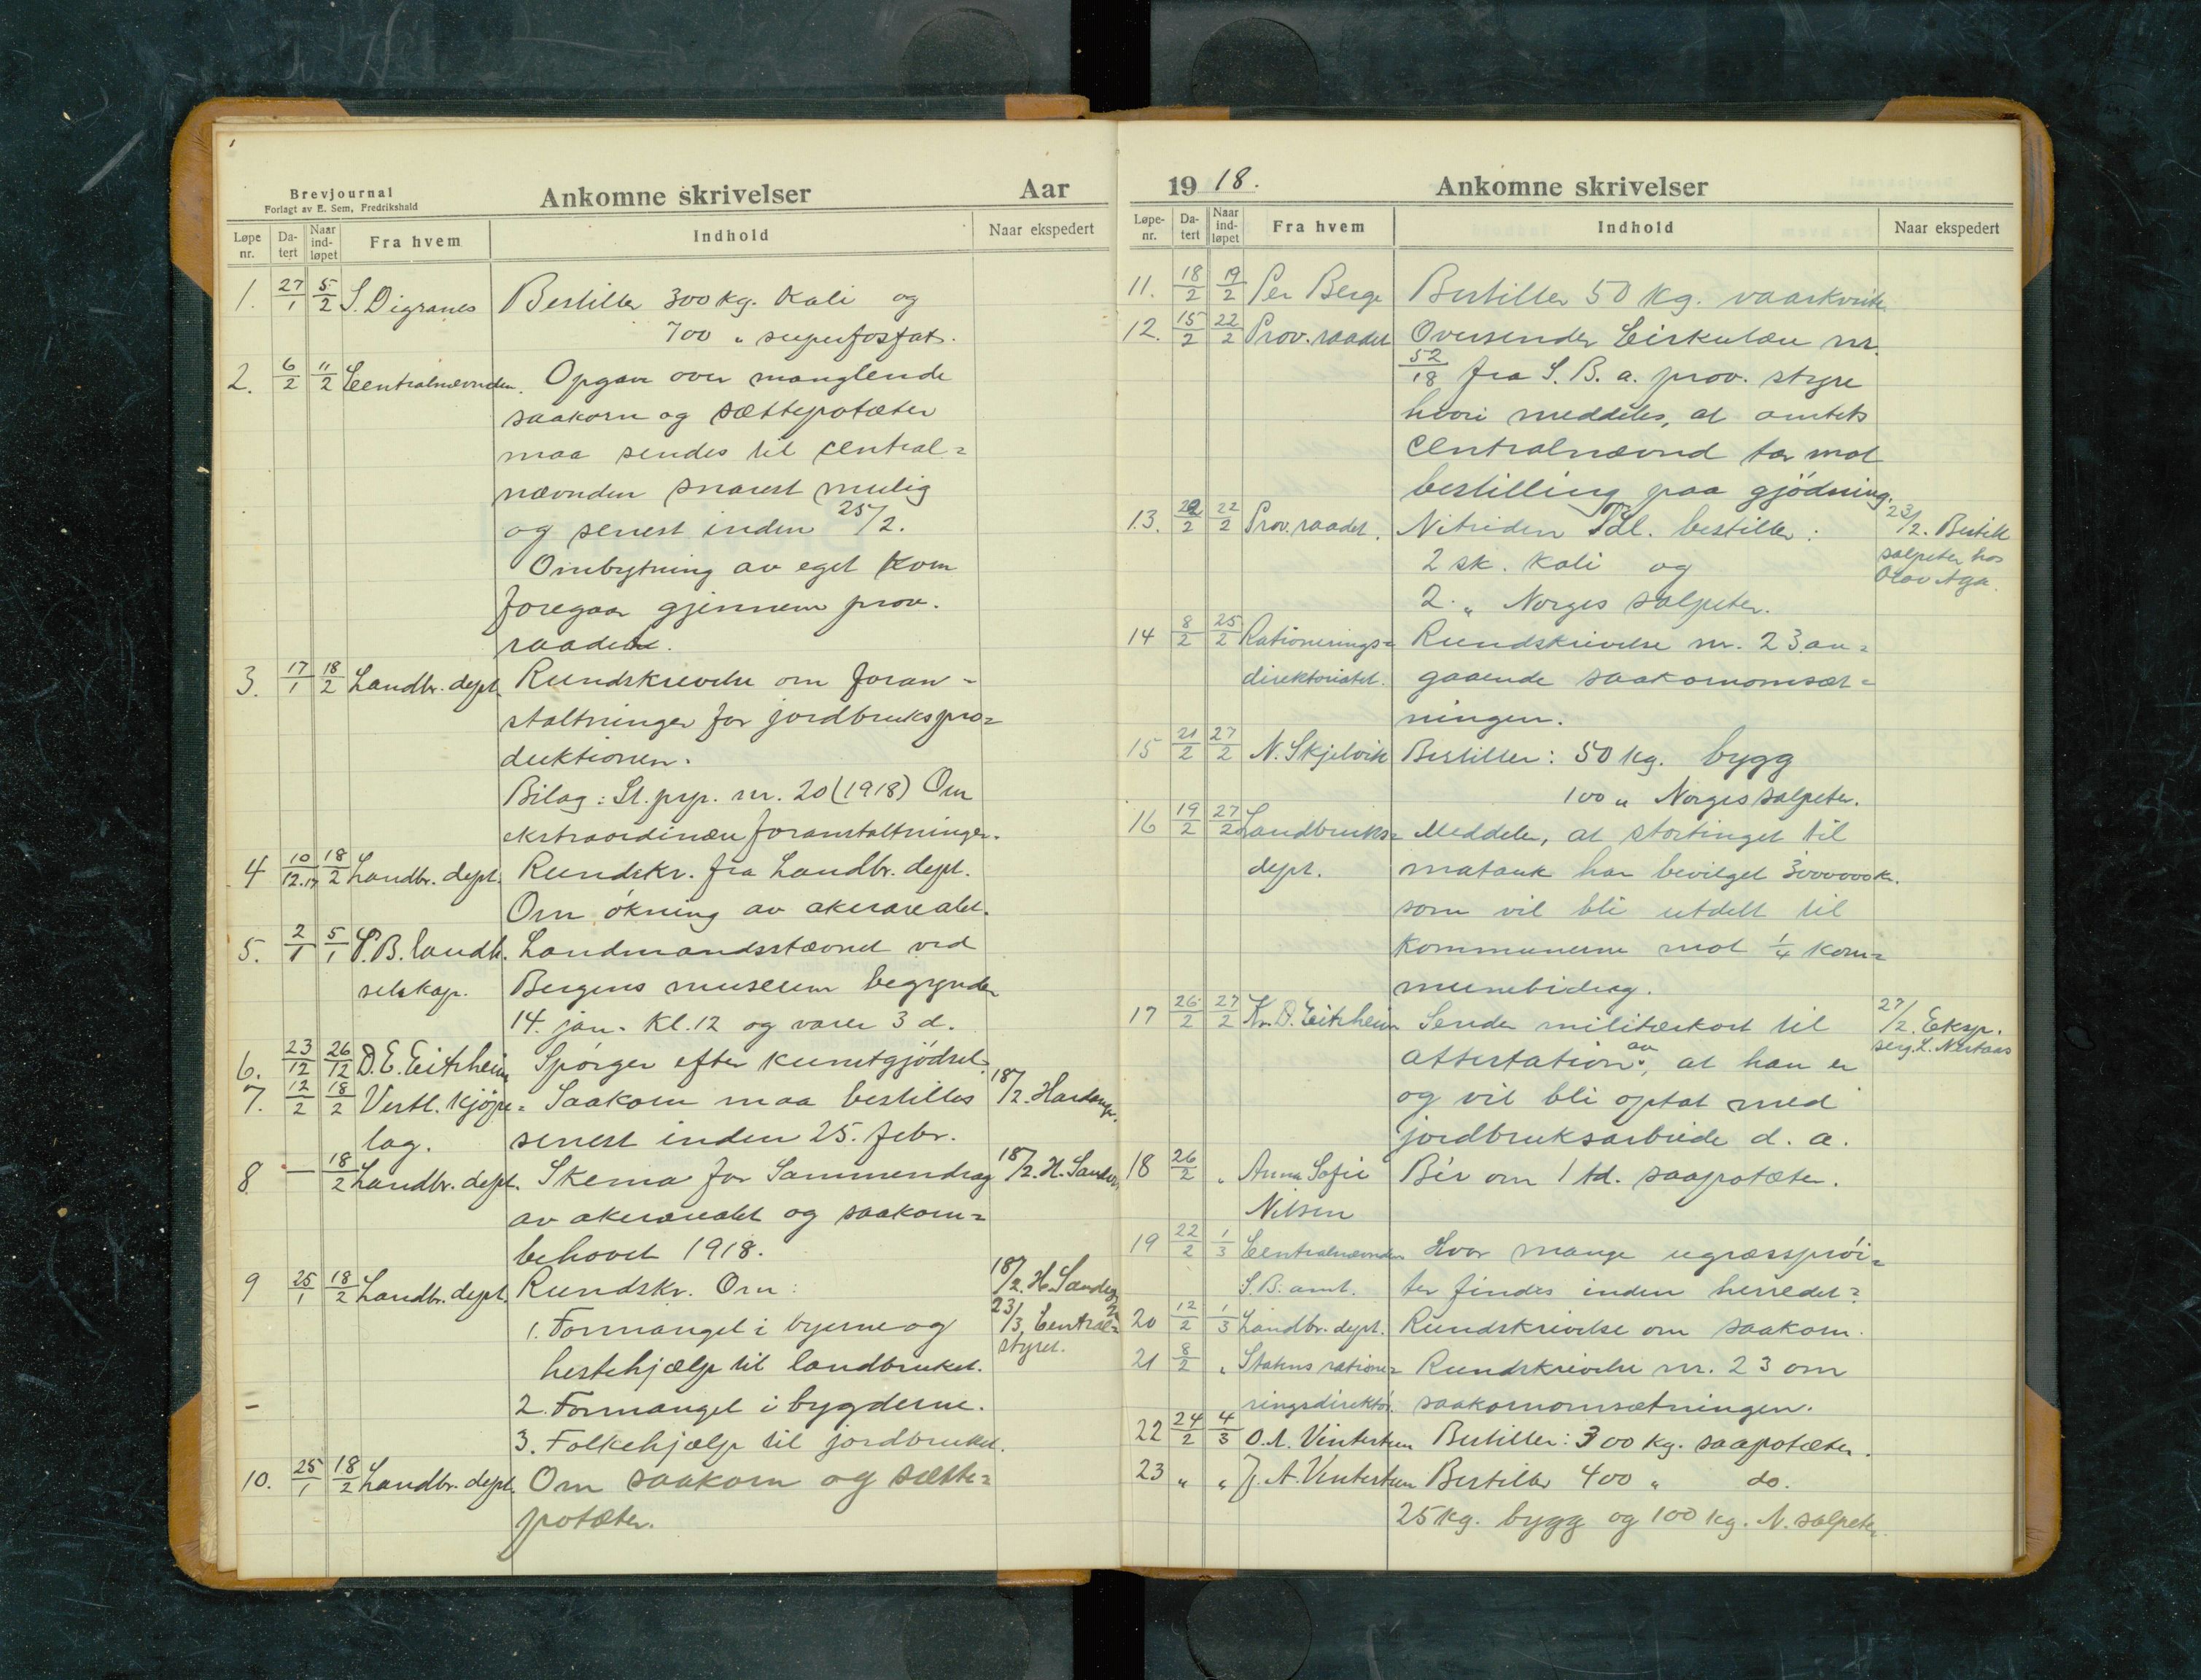 Brevjournal
Forlagt av E. Sem, Fredrikshald
Ankomne skrivelser
Aar
Løpe nr.
Datert
Naar indløpet
Fra hvem
Indhold
Naar ekspedert
1. 27/1 5/2 S. Digranes Bestiller 300 kg. Kali og
700 " superfosfat.
2. 6/2 11/2 Centralnævnden. Opgave over manglende
saakorn og sættepotæter
maa sendes til central=
nævnden snarest mulig
og senest inden 25/2.
Ombytning av eget korn
foregaar gjennem prov.
raadet.
3. 17/1 18/2 Landbr. dept. Rundskrivelse om foran-
staltninger for jordbrukspro=
duktionen.
Bilag: St. prp. nr. 20 (1918) Om
ekstraordinære foranstaltninger.
4 10/12.17 18/2 Landbr. dept. Rundskr. fra Landbr. dept.
Om økning av akerarealet.
5. 2/1 5/1 S.B. landh. Landmandsstævnet ved
selskap. Bergens museum begynder
14. jan. Kl. 12 og varer 3 d.
6. 23/12 26/12 D. E. Eitrheim Spørger efter kunstgjødsel.
7. 12/2 18/2 Vestl. kjøpe= Saakorn maa bestilles 18/2. Hardang.
lag. senest inden 25. febr.
8 — 18/2 Landbr. dept. Skema for Sammendrag 18/2. H. Sandv.
av akerarealet og saakorn=
behovet 1918.
9 25/1 18/2 Landbr. dept. Rundskr. Om: 18/2. H.
1. Formangel i byerne og 23/3 Central=
styret.
hestehjælp til landbruket.
2. Formangel i bygderne.
3. Folkehjælp til jordbruket.
10. 25/1 18/2 Landbr. dept. Om saakorn og sætte=
potæter.
19 18.
Ankomne skrivelser
Løpe-nr.
Datert
Naar indløpet
Fra hvem
Indhold
Naar ekspedert
11. 18/2 19/2 Per Berge Bestiller 50 kg. vaarkveite.
12. 15/2 22/2 Prov. raadet Oversender Cirkulære nr.
52/18 fra S. B. a. prov. styre
hvori meddeles, at amtets
centralnævnd tar mot
bestilling paa gjødning.
13. 22/2 22/2 Prov. raadet. Nitriden Tdl. bestiller: 23/2. Bestilt
salpeter hos
Olav Aga.
2 sk. Kali og
2 " Norges salpeter.
14 8/2 25/2 Rationerings= Rundskrivelse nr. 23 an=
direktoriatet. gaaende saakornomsæt=
ningen.
15 21/2 27/2 N. Skjelvik Bestiller: 50 kg. bygg
100 " Norges salpeter.
16 19/2 27/2 Landbruks= Meddeler, at stortinget til
dept. matauk har bevilget 3000000 kr.
som vil bli utdelt til
kommunerne mot 1/4 kom=
munebidrag.
17 26/2 27/2 Kr. D. Eitrheim Sender militærkort til 27/2. Eksp.
attestation av, at han er
og vil bli optat med
jordbruksarbeide d. a.
18 26/2 " Anna Sofie Ber om 1 td. saapotæter.
Nilsen
19 22/2 1/3 Centralnævnden Hvor mange ugræssprøi=
S. B. amt. ter findes inden herredet?
20 12/2 1/3 Landbr. dept. Rundskrivelse om saakorn.
21 8/2 " Statens ratione= Rundskrivelse nr. 23 om
ringsdirektør. saakornomsætningen.
22 24/2 4/3 O. A. Vintertun Bestiller: 300 kg. saapotæter.
23 " " J. A. Vintertun Bestiller 400 " do.
25 kg. bygg og 100 kg. N. salpeter.